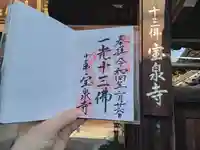 十三佛 宝泉寺
奉拝 令和四年二月廿八日
一光十三佛
宝泉寺